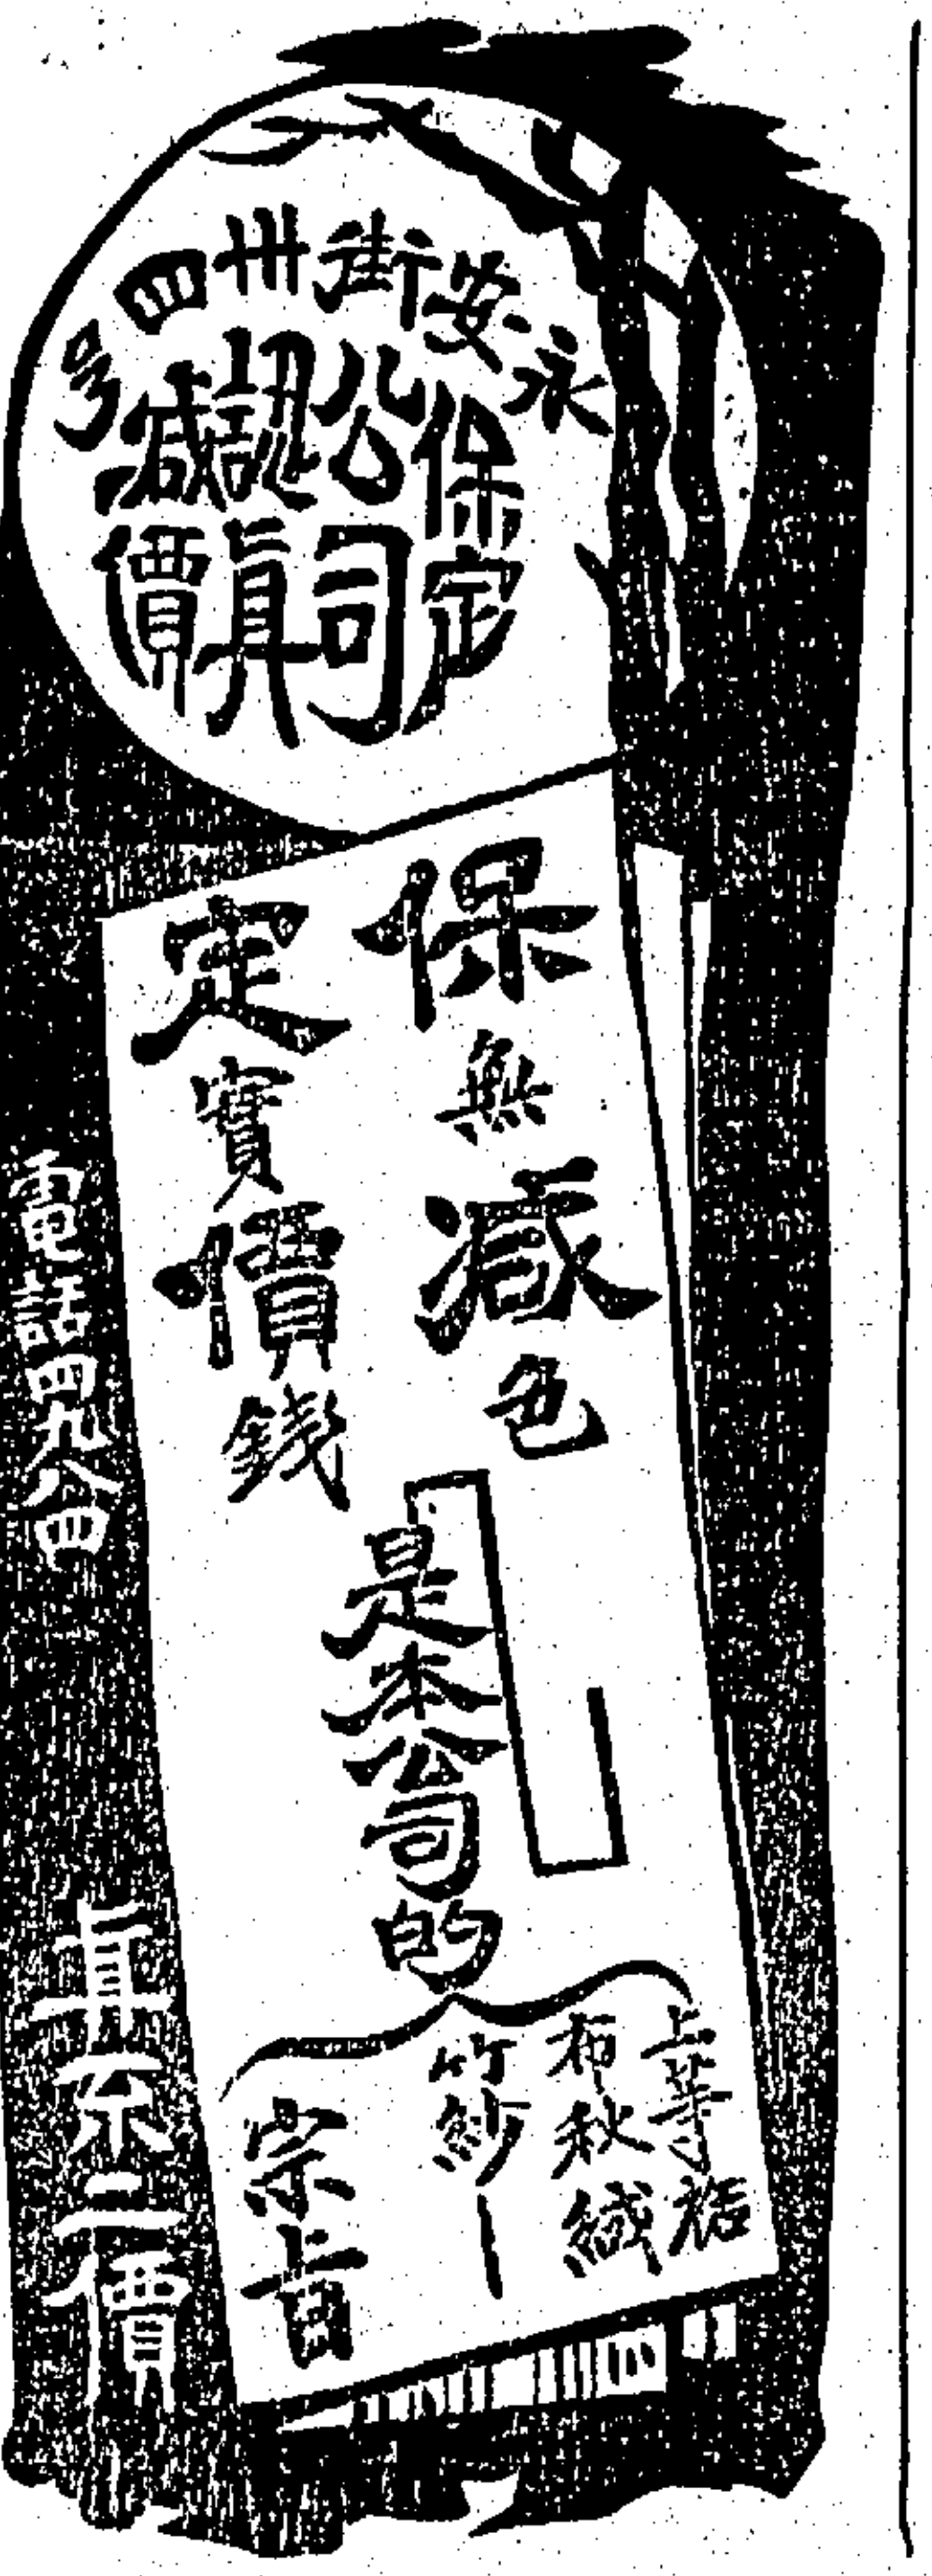 永安街卅四号
保定
公司
認真
減價
保無減色
定實價錢
是本公司的
上等
布秋絨
竹紗
宗旨
電話四九八四
真不二價